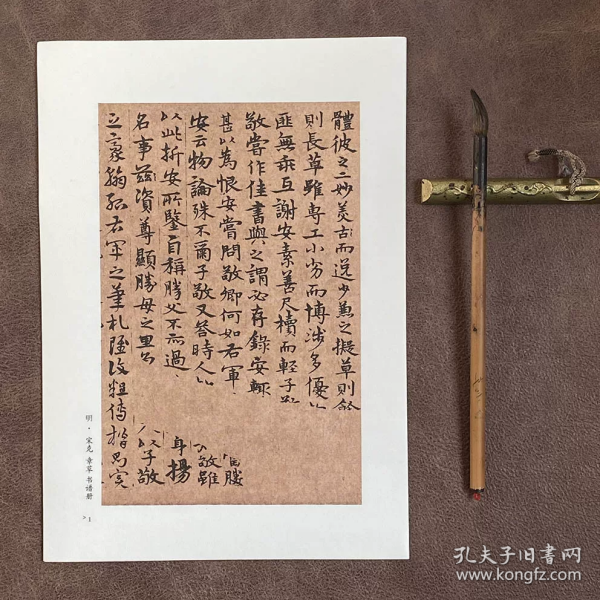 體彼之二妙羙古而逸少兼之擬草則餘
則長草雖專工小劣而博涉多優
匪無乖互謝安素善尺牘而輕子
敬嘗作佳書與之謂必存錄安輒
甚以為恨安嘗問敬卿何如右軍
安云物論殊不爾子敬又答時人
以此折安所鑒自稱勝父不亦過
名事茲資尊顯勝母之里
之豪翰紹右軍之筆札雖復粗傳楷則實
勝
敬雖
身揚
以子敬
明·宋克 章草书谱册
>1
孔夫子旧书网
www.kongfz.com